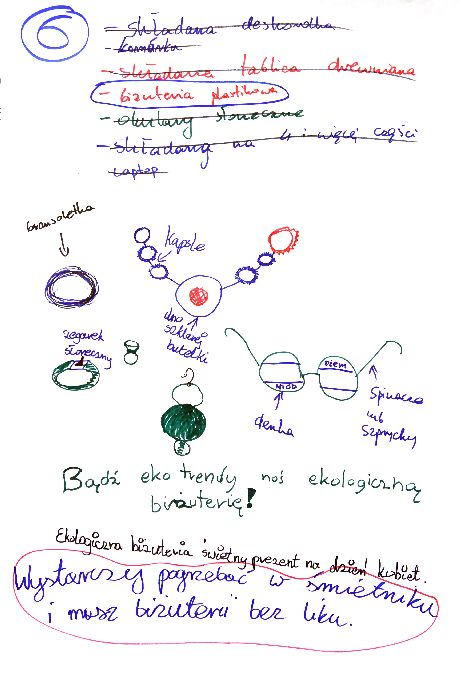 6
- składana deskorolka
- komórka
- składana tablica drewniana
- biżuteria plastikowa
- okulary słoneczne
- składany na 4 i więcej części
laptop
bransoletka
kapsle
dno
szklanej
butelki
zegarek
słoneczny
DŻEM
MIÓD
denka
Spinacze
lub
szprychy
Bądź eko trendy noś ekologiczną
biżuterię!
Ekologiczna biżuteria świetny prezent na dzień kobiet.
Wystarczy pogrzebać w śmietniku
i masz biżuterii bez liku.